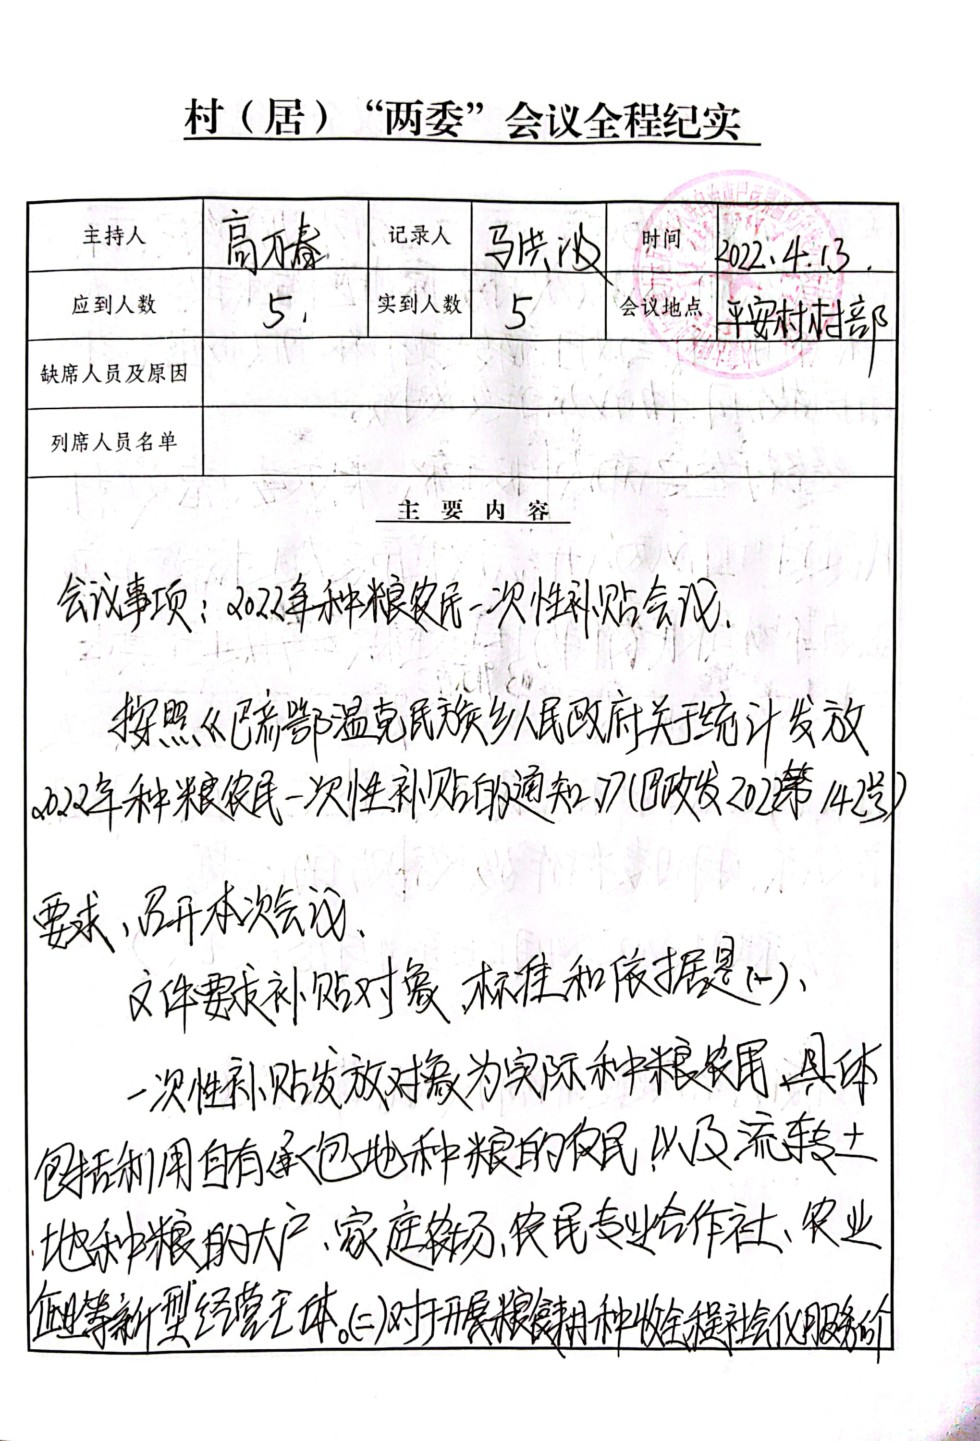 村（居）“两委”会议全程纪实
主持人 高万春 记录人 马洪波 时间 2022.4.13.
应到人数 5. 实到人数 5 会议地点 平安村村部
缺席人员及原因
列席人员名单
主要内容
会议事项：2022年种粮农民一次性补贴会议.
按照《巴彦鄂温克民族乡人民政府关于统计发放
2022年种粮农民一次性补贴的通知》(巴政发2022第142号)
要求、召开本次会议.
文件要求补贴对象、标准和依据是(一)、
一次性补贴发放对象为实际种粮农民、具体
包括利用自有承包地种粮的农民，以及流转土
地种粮的大户、家庭农场、农民专业合作社、农业
企业等新型经营主体。(二)对于开展粮食耕种收全程社会化服务的